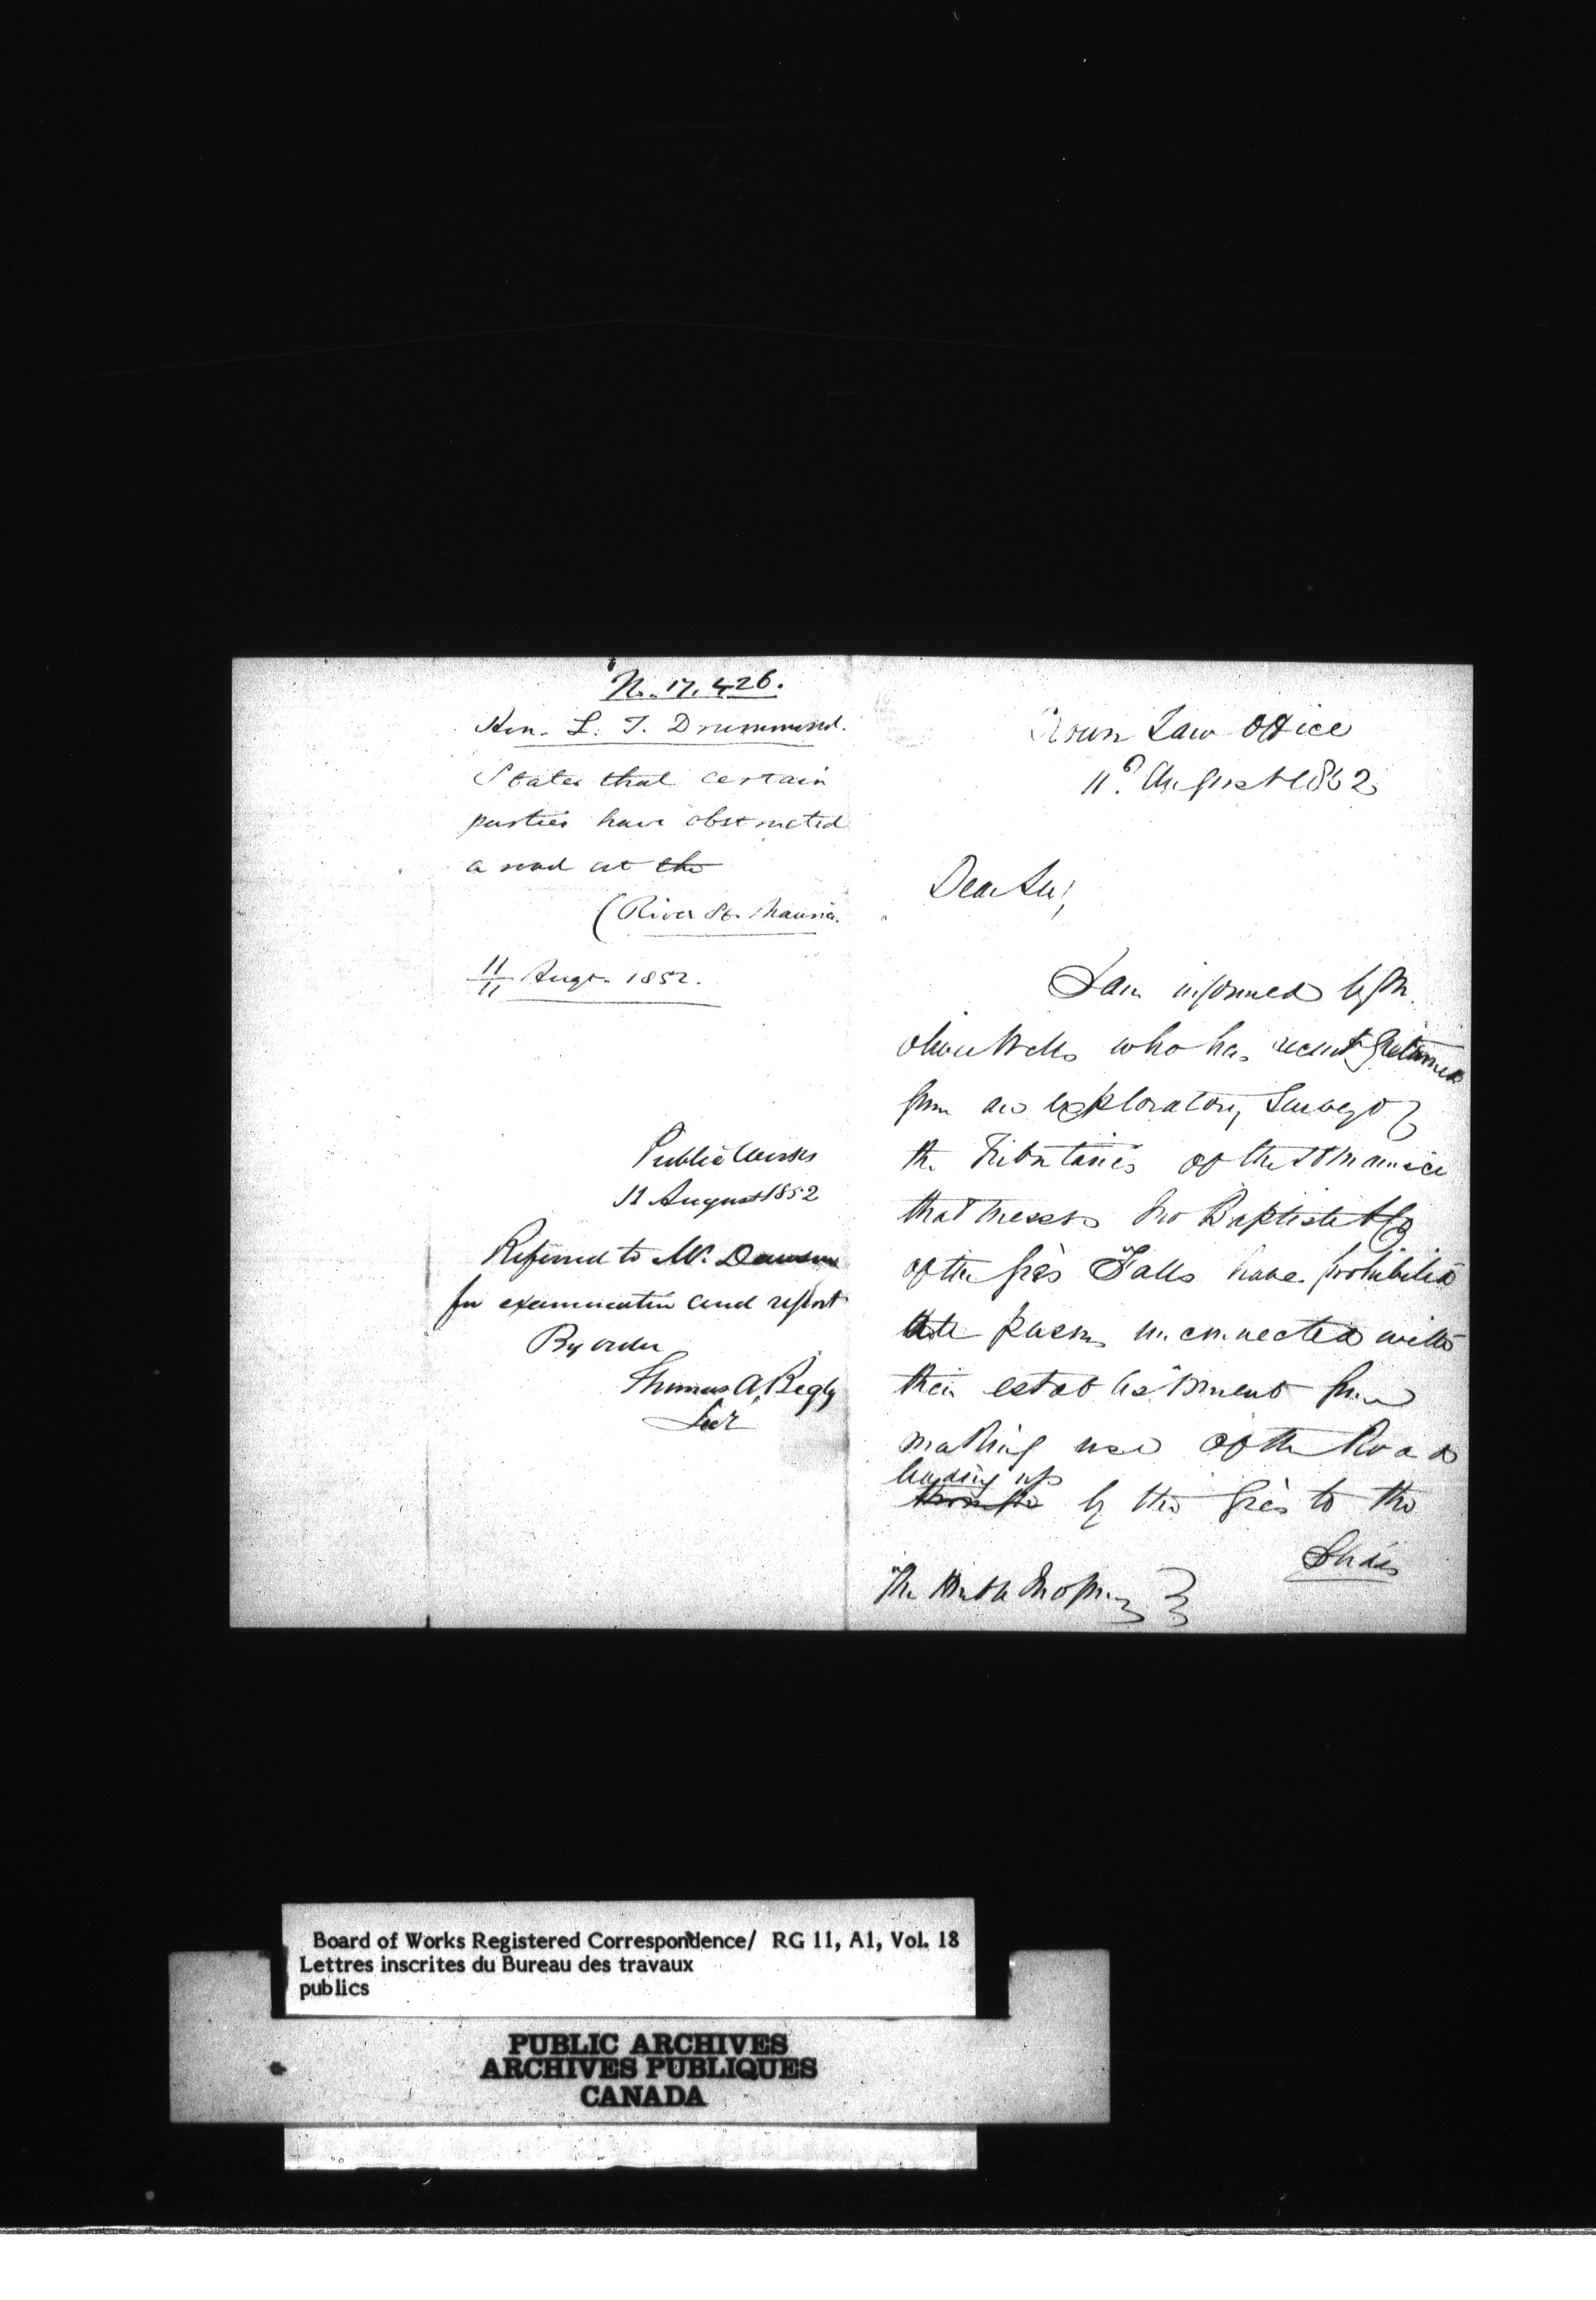 No. 17,426.
Hon. L. T. Drummond.
States that certain
parties have obstructed
a road at the
(River St. Maurice.
11/11 Augt. 1852.
Public Works
11 August 1852
Referred to Mr. Dawson
for examination and report
By order
Thomas A. Begly
Secy
Crown Law Office
11th August 1852
Dear Sir,
I am informed by Mr
Oliver Wells who has recently returned
from an exploratory Survey of
the Tributaries of the St Maurice
that Messrs Baptiste & Co
of the Grès Falls have prohibited
all persons unconnected with
their establishment from
making use of the Road
leading up
by the Grès to the
The Honble
Board of Works Registered Correspondence/ RG 11, A1, Vol. 18
Lettres inscrites du Bureau des travaux
publics
PUBLIC ARCHIVES
ARCHIVES PUBLIQUES
CANADA